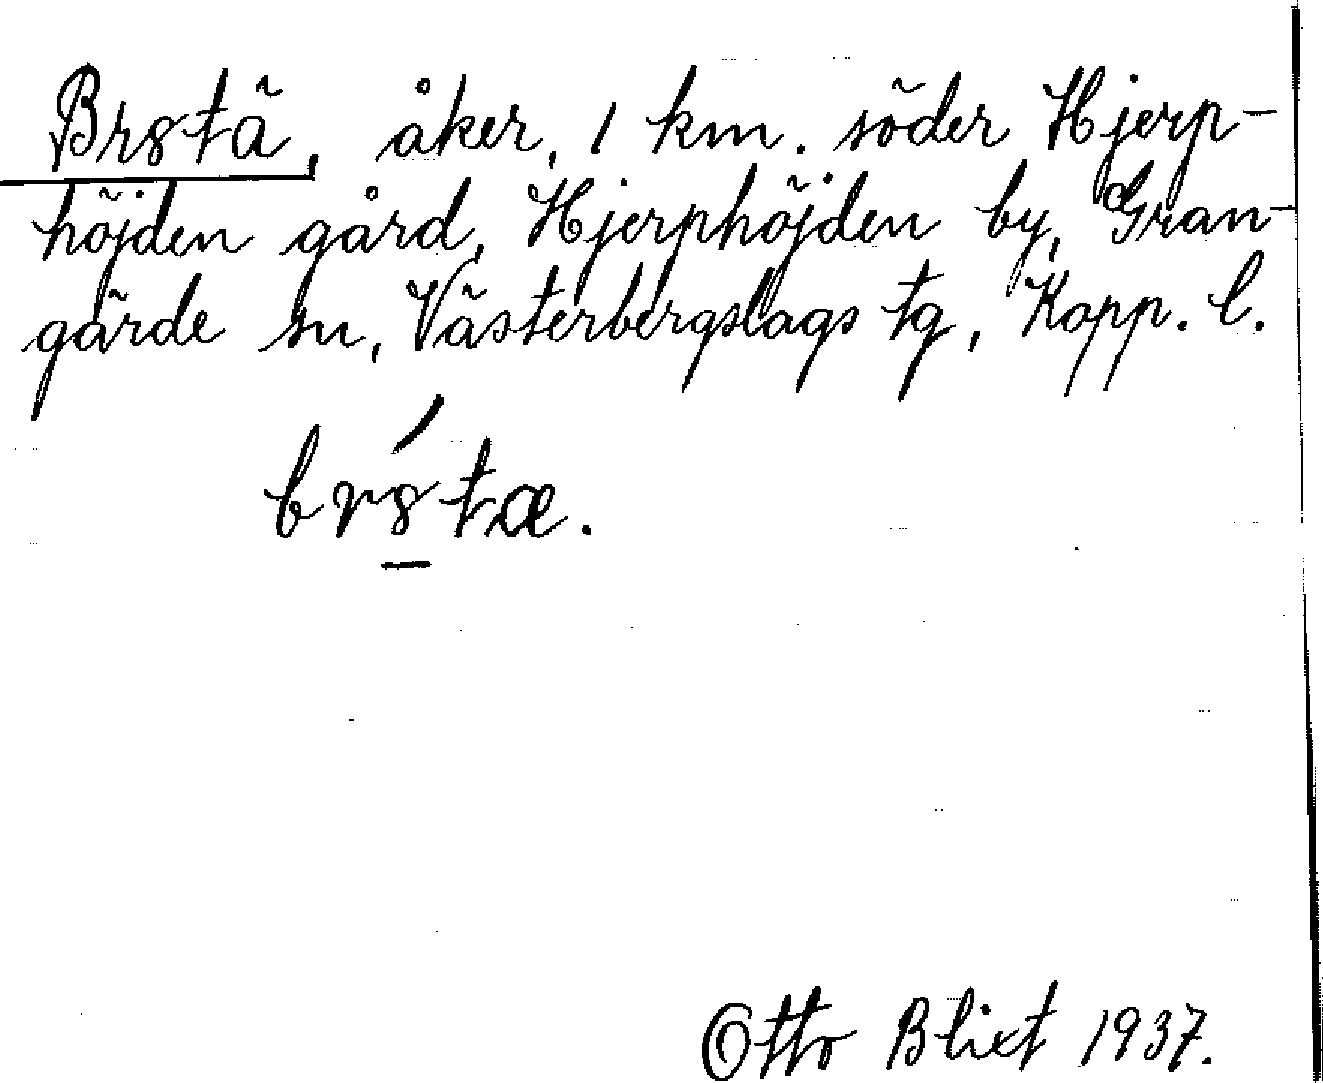 Brstä, åker, 1 km. söder Hjerp-
höjden gård, Hjerphöjden by, Gran-
gärde sn, Västerbergslags tg, Kopp. l.
brstæ.
Otto Blixt 1937.